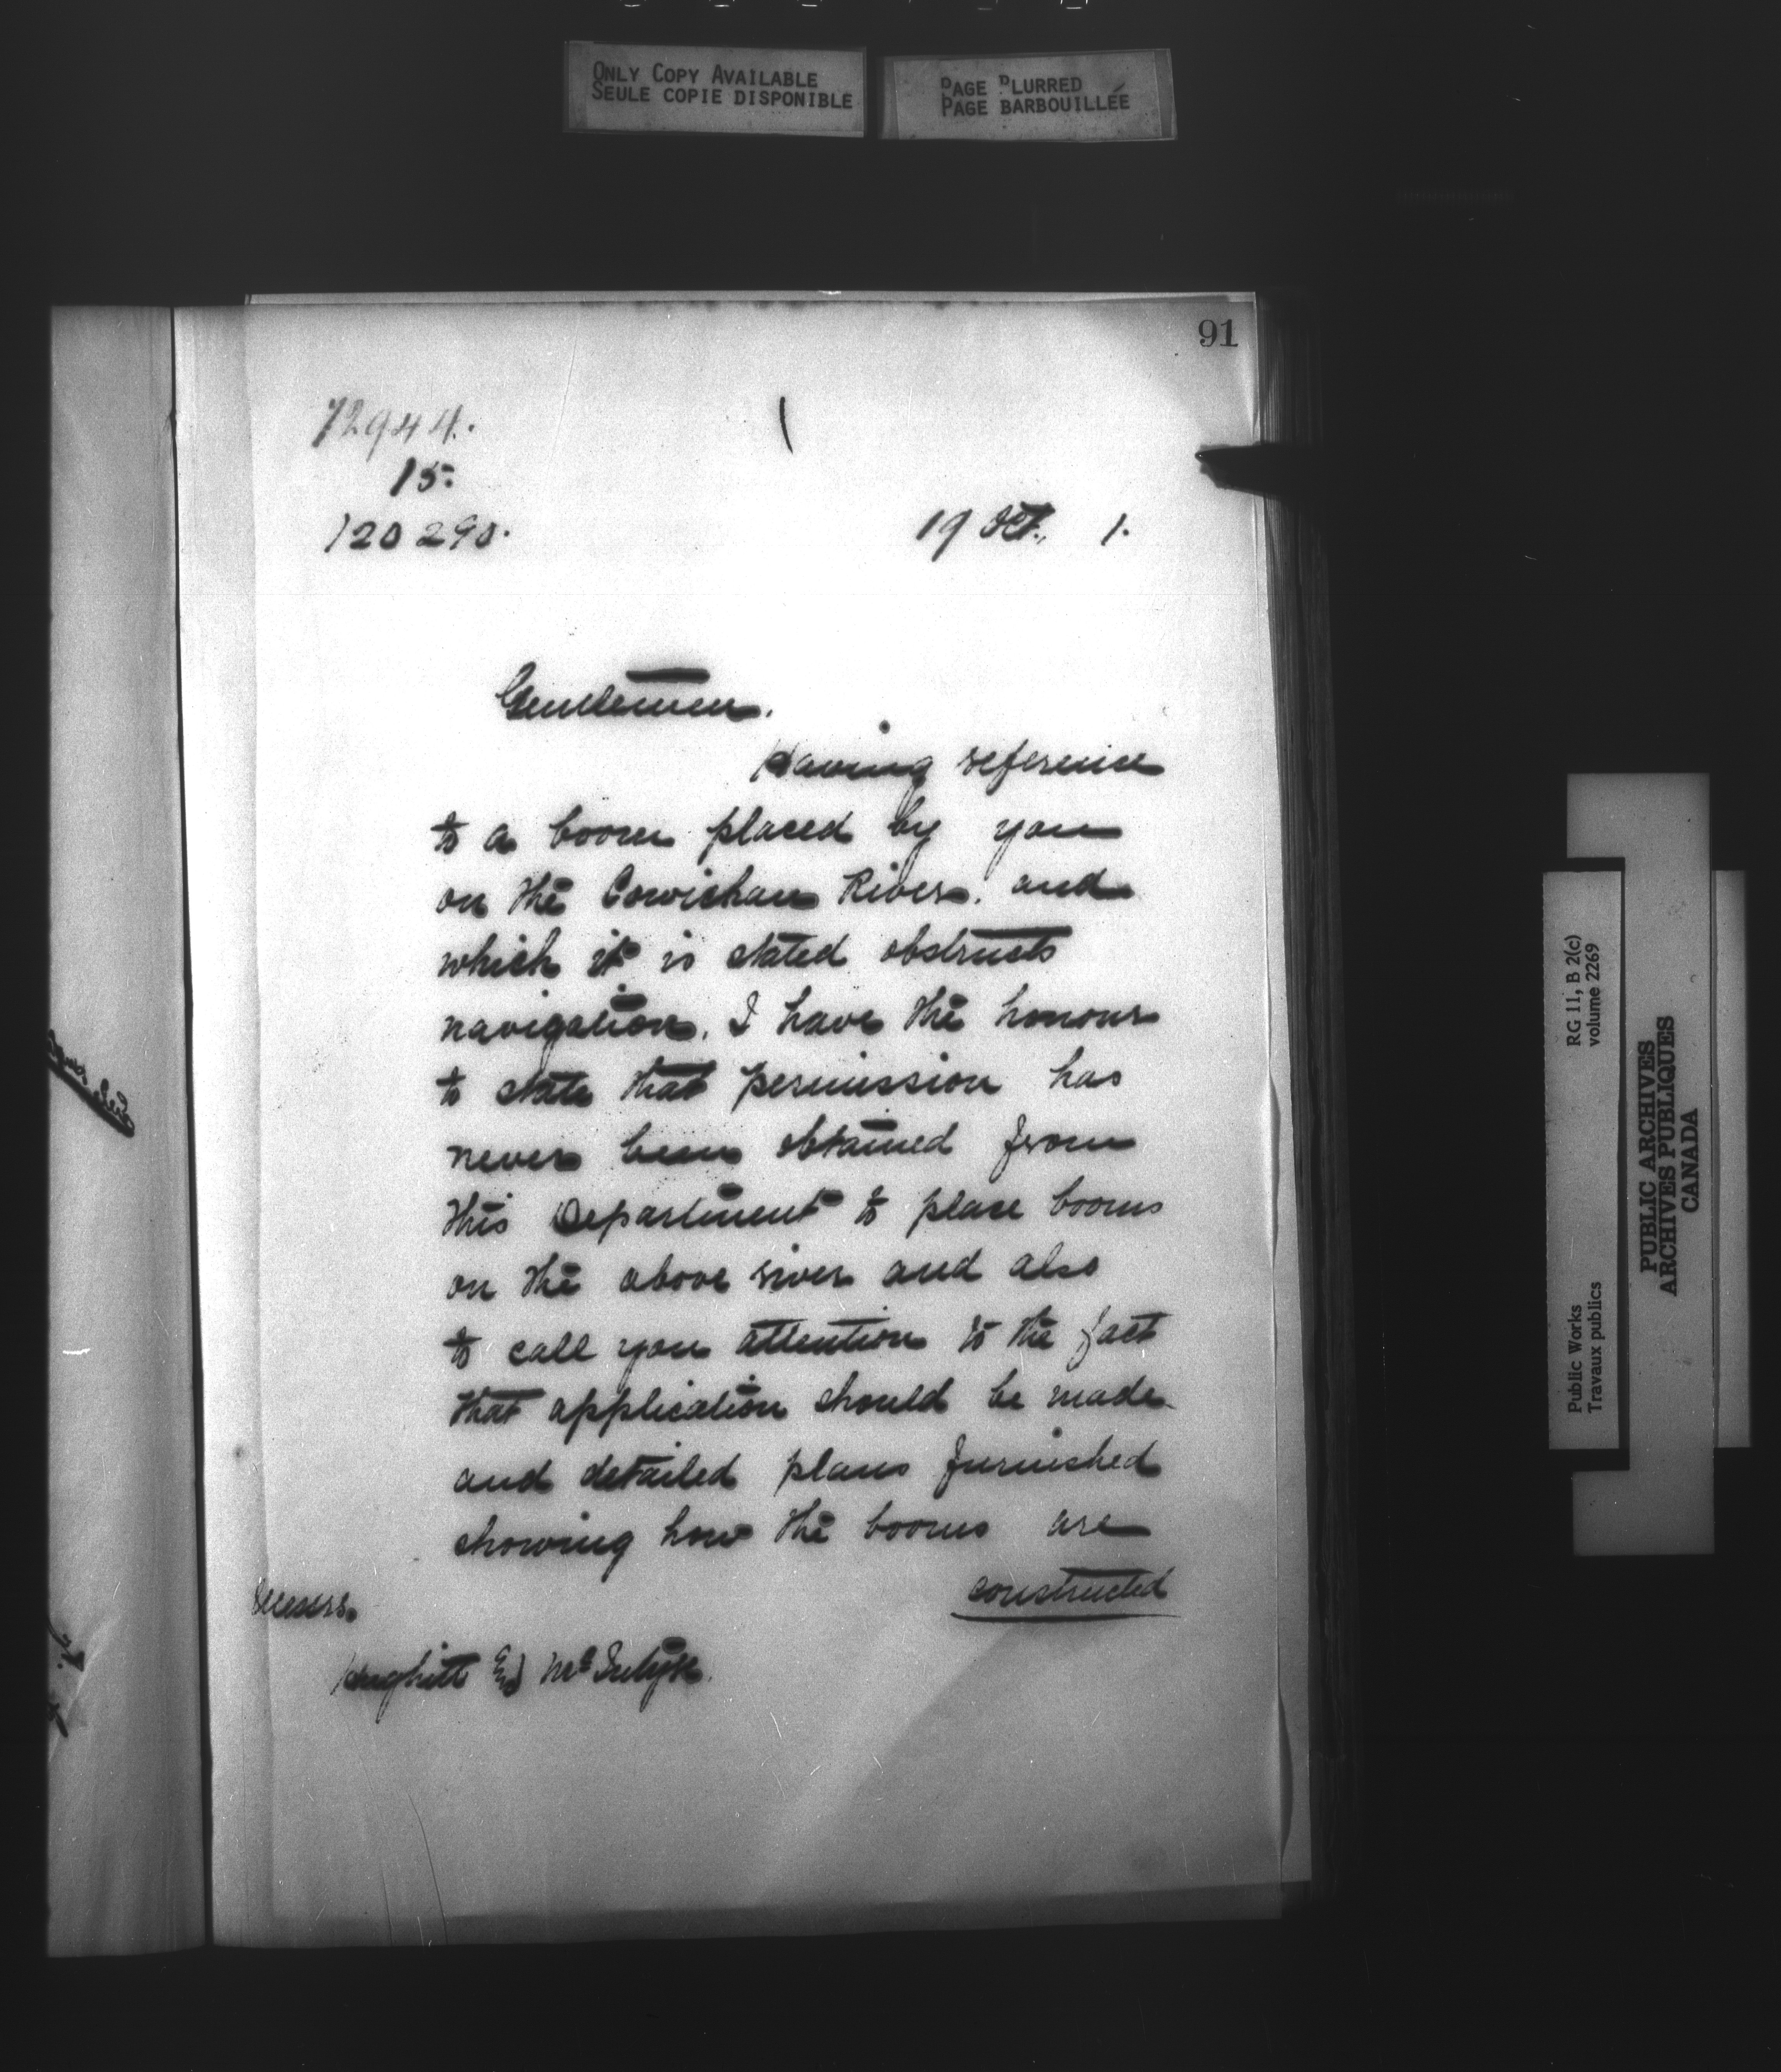 ONLY COPY AVAILABLE
SEULE COPIE DISPONIBLE
PAGE BLURRED
PAGE BARBOUILLÉE
91
72944.
15.
120290.
19 Oct., 1.
Gentlemen.
Having reference
to a boom placed by you
on the Cowichan River. and
which it is stated obstructs
navigation. I have the honour
to state that permission has
never been obtained from
this Department to place booms
on the above river and also
to call you attention to the fact
that application should be made
and detailed plans furnished
showing how the booms are
constructed
Messrs.
Hughitt & McIntyre.
RG 11, B 2(c)
volume 2269
Public Works
Travaux publics
PUBLIC ARCHIVES
ARCHIVES PUBLIQUES
CANADA